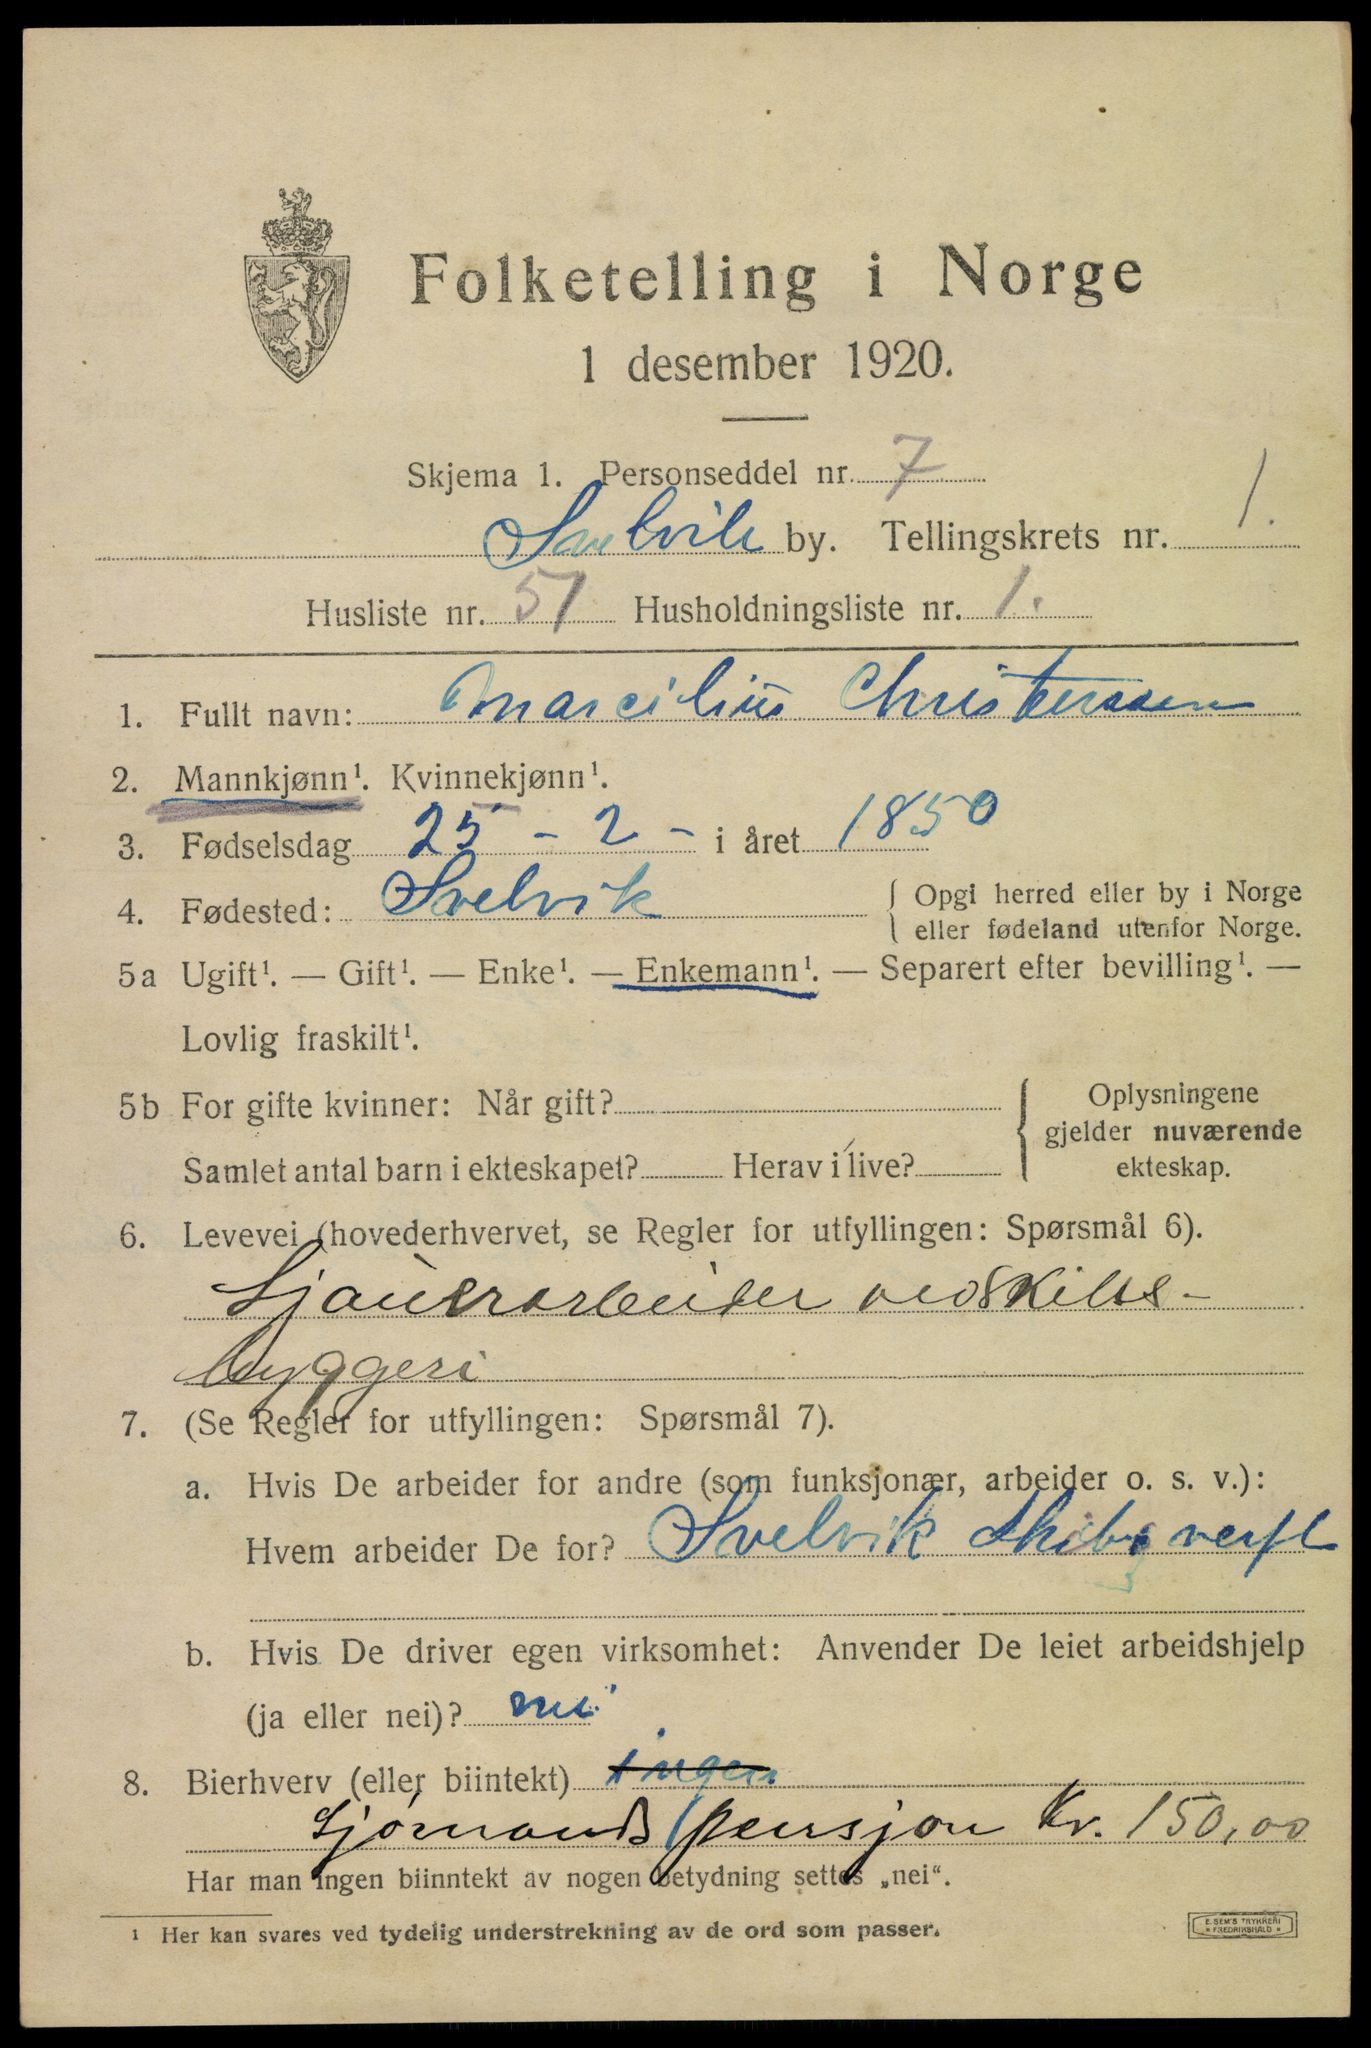 Folketelling i Norge
1 desember 1920.
Skjema 1. Personseddel nr. 7
Svelvik by. Tellingskrets nr. 1.
Husliste nr. 51 Husholdningsliste nr. 1.
1. Fullt navn: Marcilius Christensen
2. Mannkjønn¹. Kvinnekjønn¹.
3. Fødselsdag 25 - 2 - i året 1850
4. Fødested: Svelvik { Opgi herred eller by i Norge
eller fødeland utenfor Norge.
5a Ugift¹. — Gift¹. — Enke¹. — Enkemann¹. — Separert efter bevilling¹. —
Lovlig fraskilt¹.
5b For gifte kvinner: Når gift? { Oplysningene
gjelder nuværende
Samlet antal barn i ekteskapet? Herav i live? ekteskap.
6. Levevei (hovederhvervet, se Regler for utfyllingen: Spørsmål 6).
Sjauerarbeider ved skibs-
byggeri
7. (Se Regler for utfyllingen: Spørsmål 7).
a. Hvis De arbeider for andre (som funksjonær, arbeider o. s. v.):
Hvem arbeider De for? Svelvik Skibsverft
b. Hvis De driver egen virksomhet: Anvender De leiet arbeidshjelp
(ja eller nei)? nei
8. Bierhverv (eller biintekt) ingen
Sjømandspensjon Kr. 150,00
Har man ingen biinntekt av nogen betydning settes „nei“.
¹ Her kan svares ved tydelig understrekning av de ord som passer.
E. SEM'S TRYKKERI
FREDRIKSHALD